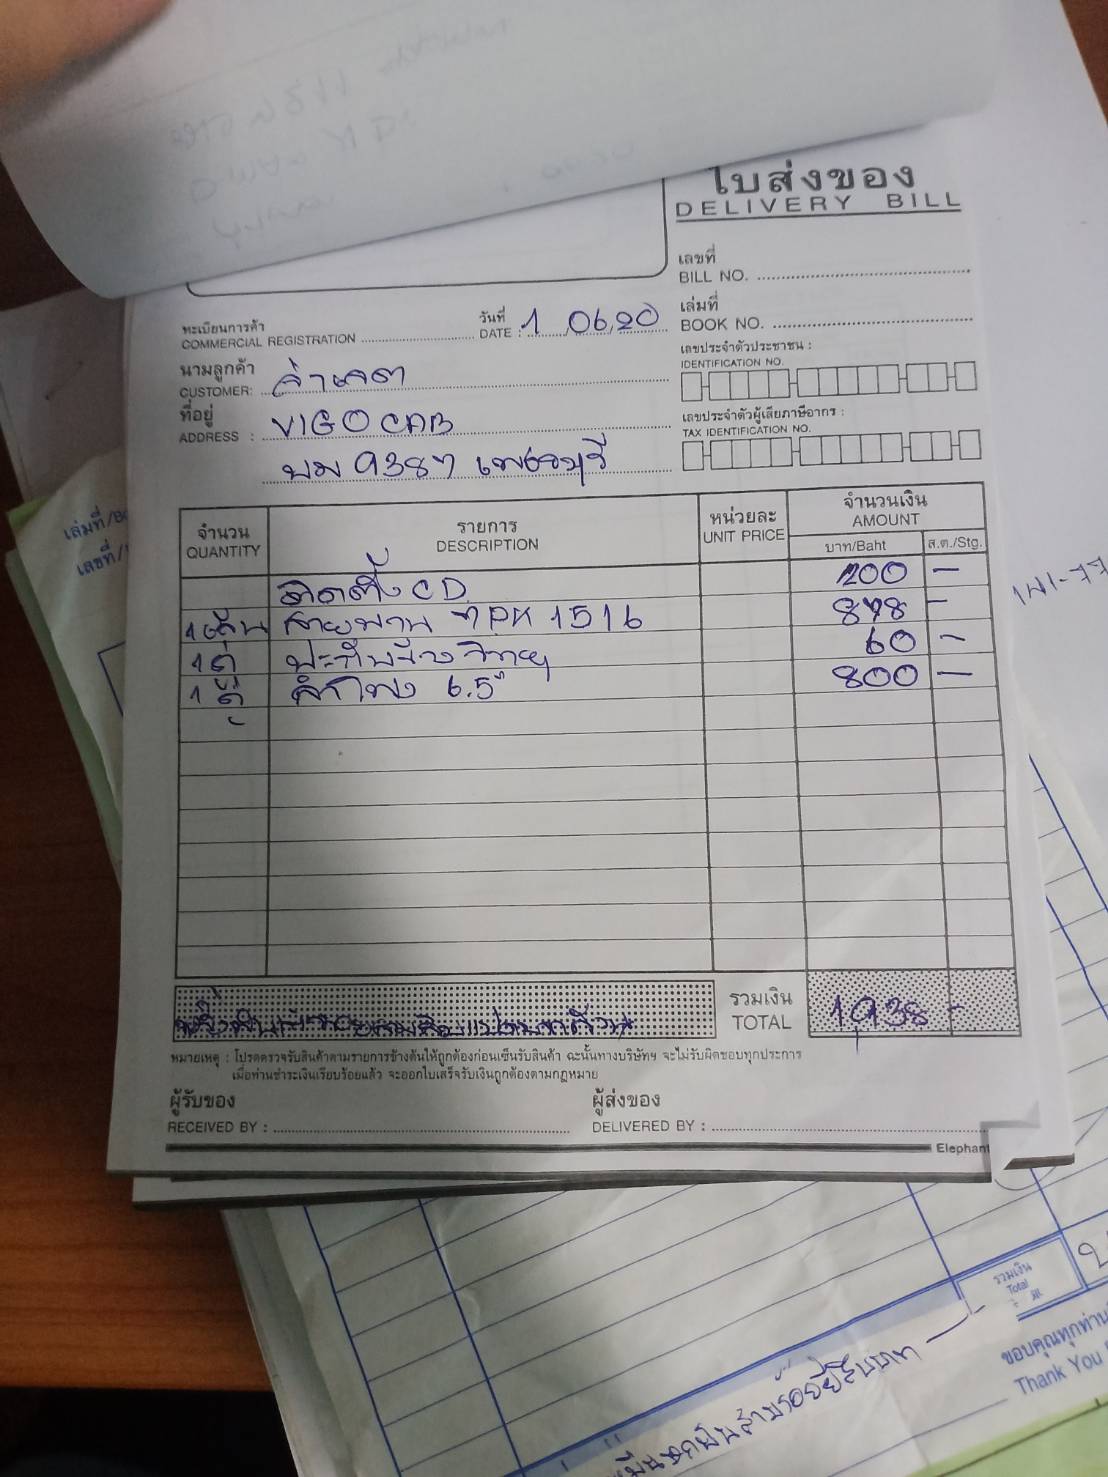 ใบส่งของ
DELIVERY BILL
เลขที่
BILL NO.
เล่มที่
BOOK NO.
ทะเบียนการค้า
COMMERCIAL REGISTRATION
วันที่
DATE : 1/06/20
นามลูกค้า
CUSTOMER:
ที่อยู่
ADDRESS : VIGO CAB
บม 9387 เพชรบุรี
เลขประจำตัวประชาชน :
IDENTIFICATION NO.
เลขประจำตัวผู้เสียภาษีอากร :
TAX IDENTIFICATION NO.
จำนวน
QUANTITY
รายการ
DESCRIPTION
หน่วยละ
UNIT PRICE
จำนวนเงิน
AMOUNT
บาท/Baht
ส.ต./Stg.
ติดตั้ง CD 200 –
1 เส้น สายพาน 7PK 1516 878 –
1 60 –
1 คู่ ลำโพง 6.5" 800 –
รวมเงิน
TOTAL
1,938 –
หนึ่งพันเก้าร้อยสามสิบแปดบาทถ้วน
หมายเหตุ : โปรดตรวจรับสินค้าตามรายการข้างต้นให้ถูกต้องก่อนเซ็นรับสินค้า ฉะนั้นทางบริษัทฯ จะไม่รับผิดชอบทุกประการ
เมื่อท่านชำระเงินเรียบร้อยแล้ว จะออกใบเสร็จรับเงินถูกต้องตามกฎหมาย
ผู้รับของ
RECEIVED BY :
ผู้ส่งของ
DELIVERED BY :
Elephant
เล่มที่/
เลขที่/
รวมเงิน
Total
ขอบคุณทุกท่าน
Thank You